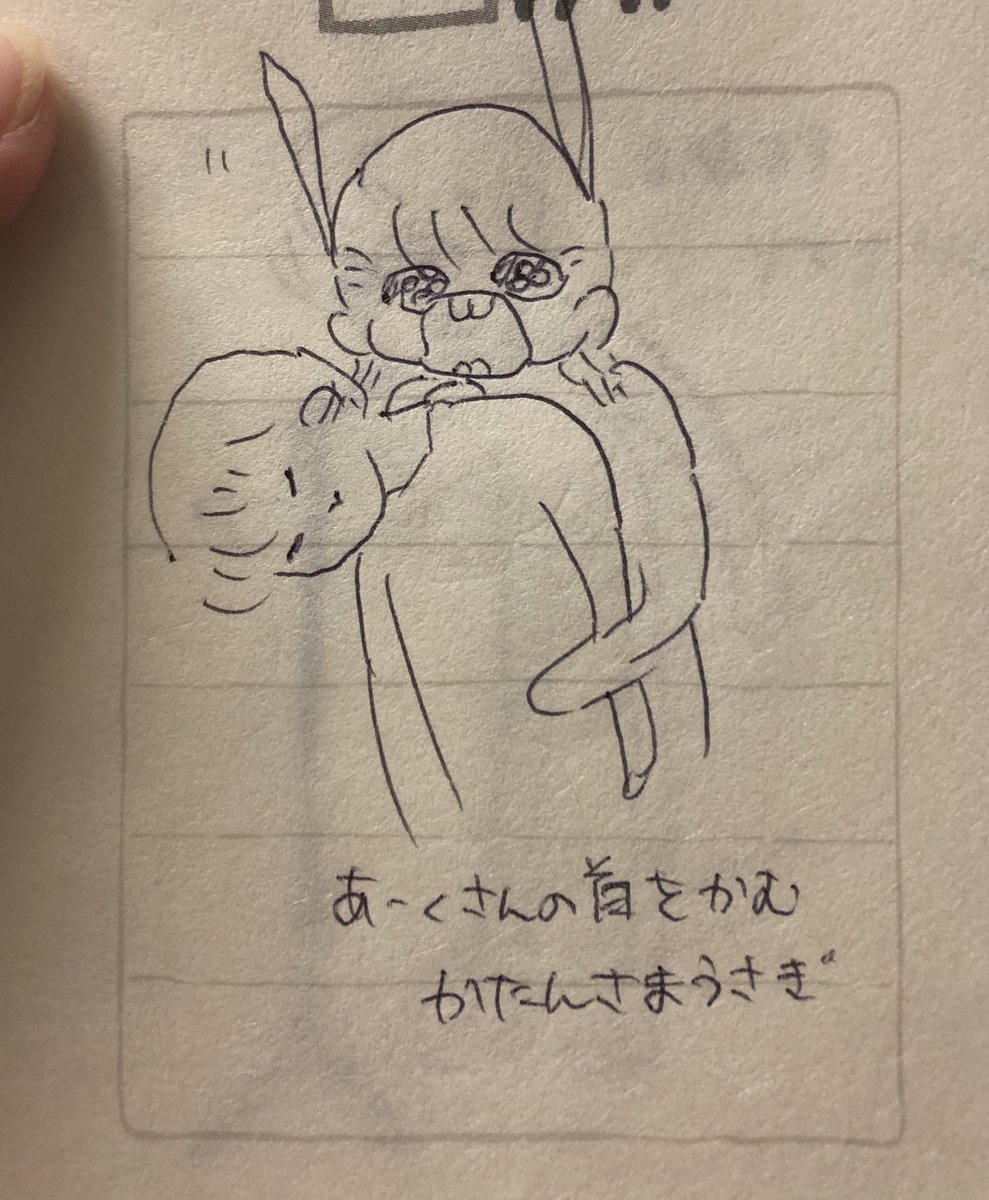 あーくさんの首をかむ
かたんさまうさぎ